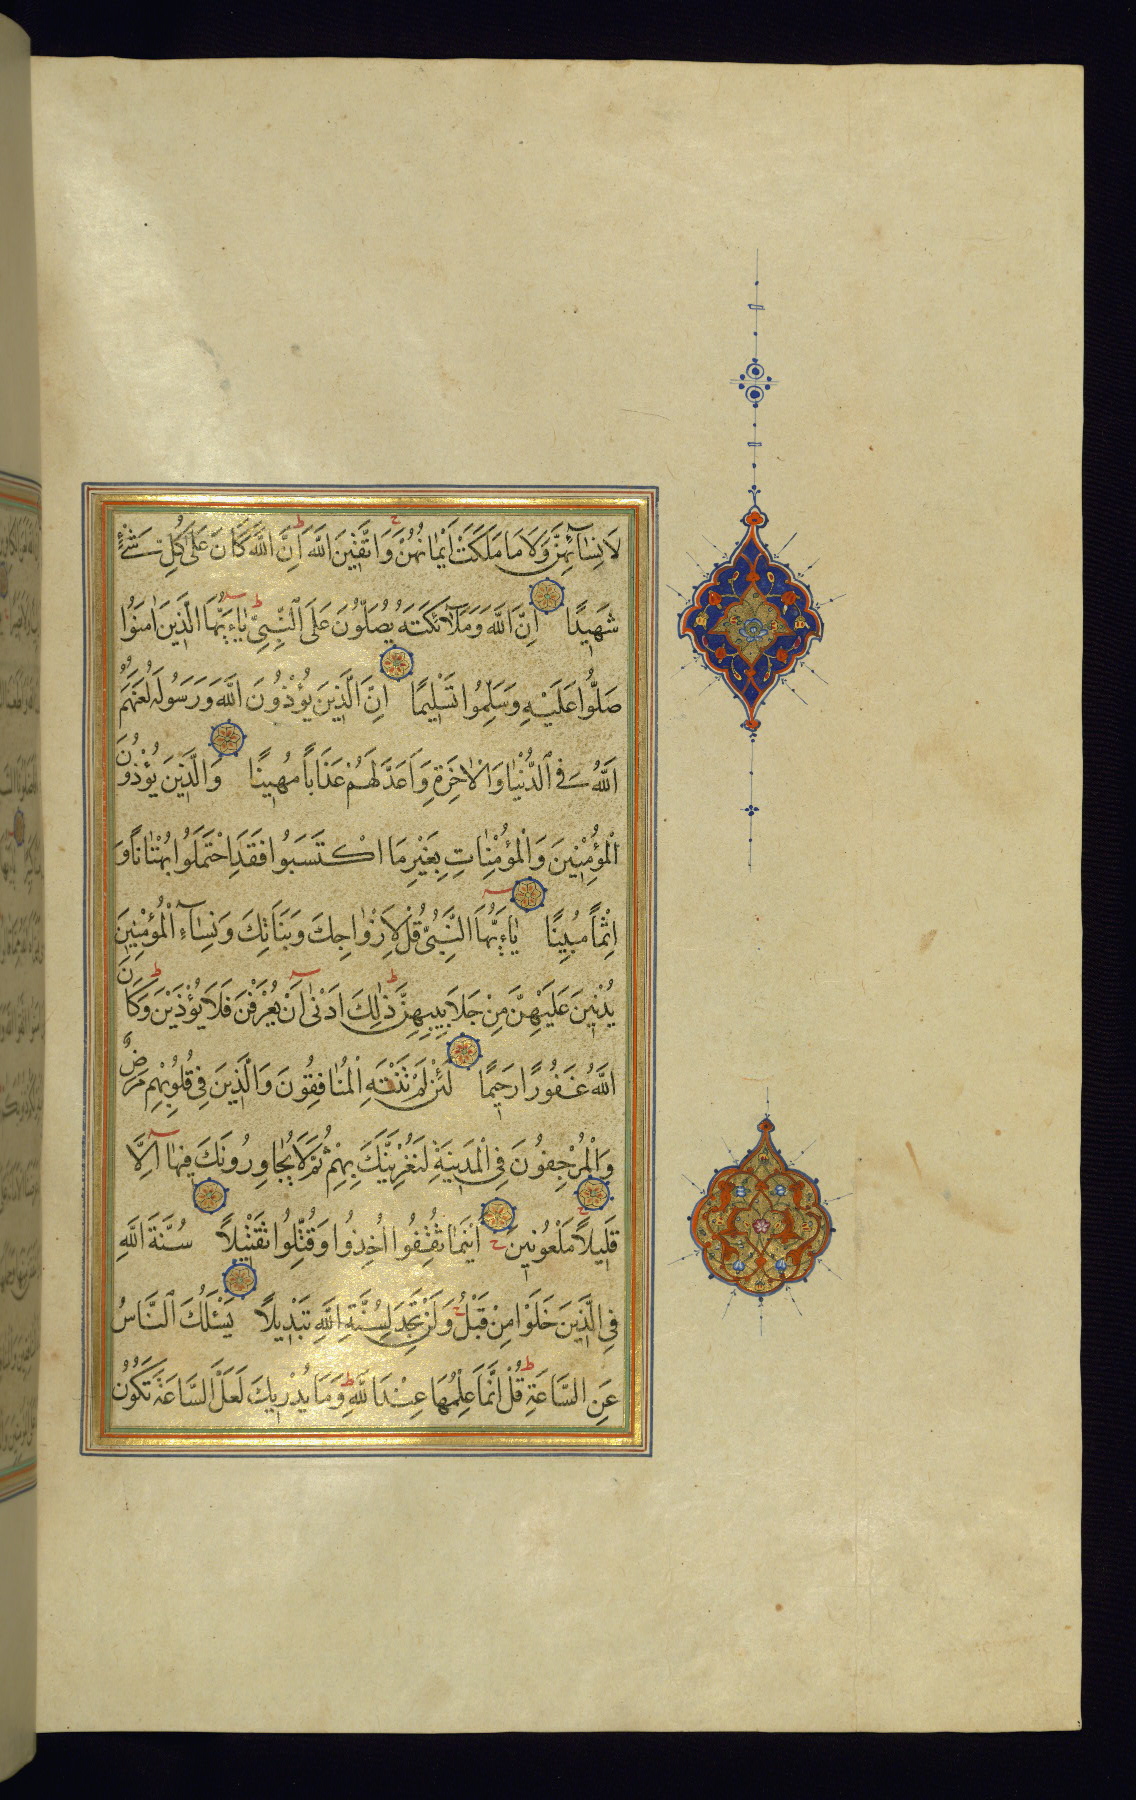 لَا نِسَآئِهِنَّ وَلَا مَا مَلَكَتْ اَيْمَانُهُنَّ وَاتَّقٖينَ اللّٰهَ اِنَّ اللّٰهَ كَانَ عَلٰى كُلِّ شَىْءٍ
شَهٖيدًا اِنَّ اللّٰهَ وَمَلٰٓائِكَتَهُ يُصَلُّونَ عَلَى النَّبِىِّ يٰٓاءَيُّهَا الَّذٖينَ اٰمَنُوا
صَلُّوا عَلَيْهِ وَسَلِّمُوا تَسْلٖيمًا اِنَّ الَّذٖينَ يُؤْذُونَ اللّٰهَ وَرَسُولَهُ لَعَنَهُمُ
اللّٰهُ فِى الدُّنْيَا وَالْاٰخِرَةِ وَاَعَدَّ لَهُمْ عَذَابًا مُهٖينًا وَالَّذٖينَ يُؤْذُونَ
الْمُؤْمِنٖينَ وَالْمُؤْمِنَاتِ بِغَيْرِ مَا اكْتَسَبُوا فَقَدِ احْتَمَلُوا بُهْتَانًا وَ
اِثْمًا مُبٖينًا يٰٓاءَيُّهَا النَّبِىُّ قُلْ لِاَزْوَاجِكَ وَبَنَاتِكَ وَنِسَآءِ الْمُؤْمِنٖينَ
يُدْنٖينَ عَلَيْهِنَّ مِنْ جَلَابٖيبِهِنَّ ذٰلِكَ اَدْنٰٓى اَنْ يُعْرَفْنَ فَلَا يُؤْذَيْنَ وَكَانَ
اللّٰهُ غَفُورًا رَحٖيمًا لَئِنْ لَمْ يَنْتَهِ الْمُنَافِقُونَ وَالَّذٖينَ فِى قُلُوبِهِمْ مَرَضٌ
وَالْمُرْجِفُونَ فِى الْمَدٖينَةِ لَنُغْرِيَنَّكَ بِهِمْ ثُمَّ لَا يُجَاوِرُونَكَ فٖيهَٓا اِلَّا
قَلٖيلًا مَلْعُونٖينَ اَيْنَمَا ثُقِفُوا اُخِذُوا وَقُتِّلُوا تَقْتٖيلًا سُنَّةَ اللّٰهِ
فِى الَّذٖينَ خَلَوْا مِنْ قَبْلُ وَلَنْ تَجِدَ لِسُنَّةِ اللّٰهِ تَبْدٖيلًا يَسْئَلُكَ النَّاسُ
عَنِ السَّاعَةِ قُلْ اِنَّمَا عِلْمُهَا عِنْدَ اللّٰهِ وَمَا يُدْرٖيكَ لَعَلَّ السَّاعَةَ تَكُونُ